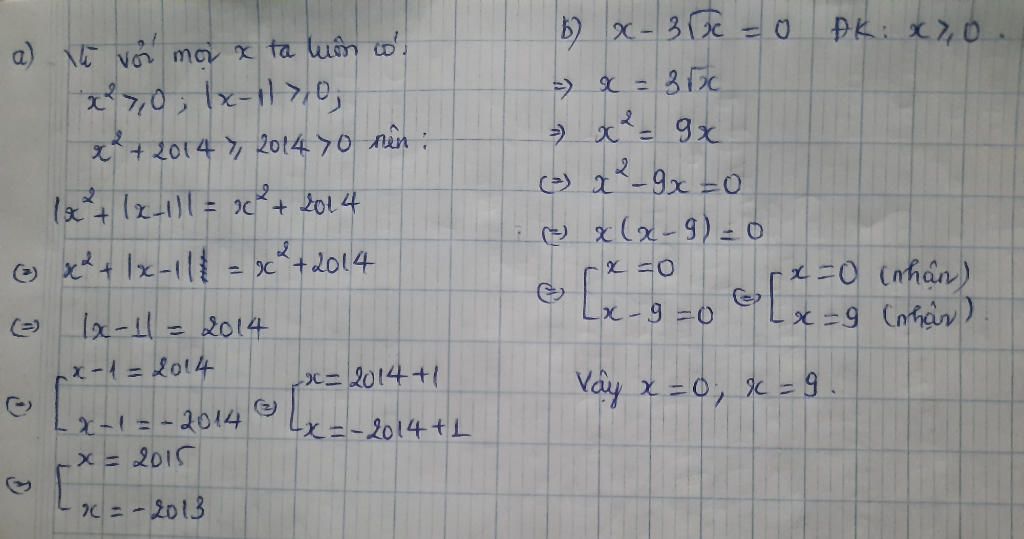 a) Vì với mọi x ta luôn có:
x² ≥ 0 ; |x-1| ≥ 0;
x² + 2014 ≥ 2014 > 0 nên :
|x² + |x-1|| = x² + 2014
(=) x² + |x-1| = x² + 2014
(=) |x-1| = 2014
(=) [ x-1 = 2014
x-1 = -2014 (=) [ x = 2014+1
x = -2014+1
(=) [ x = 2015
x = -2013
b) x - 3√x = 0 ĐK: x ≥ 0.
=) x = 3√x
=) x² = 9x
(=) x² - 9x = 0
(=) x(x-9) = 0
(=) [ x = 0
x - 9 = 0 (=) [ x = 0 (nhận)
x = 9 (nhận).
Vậy x = 0; x = 9.